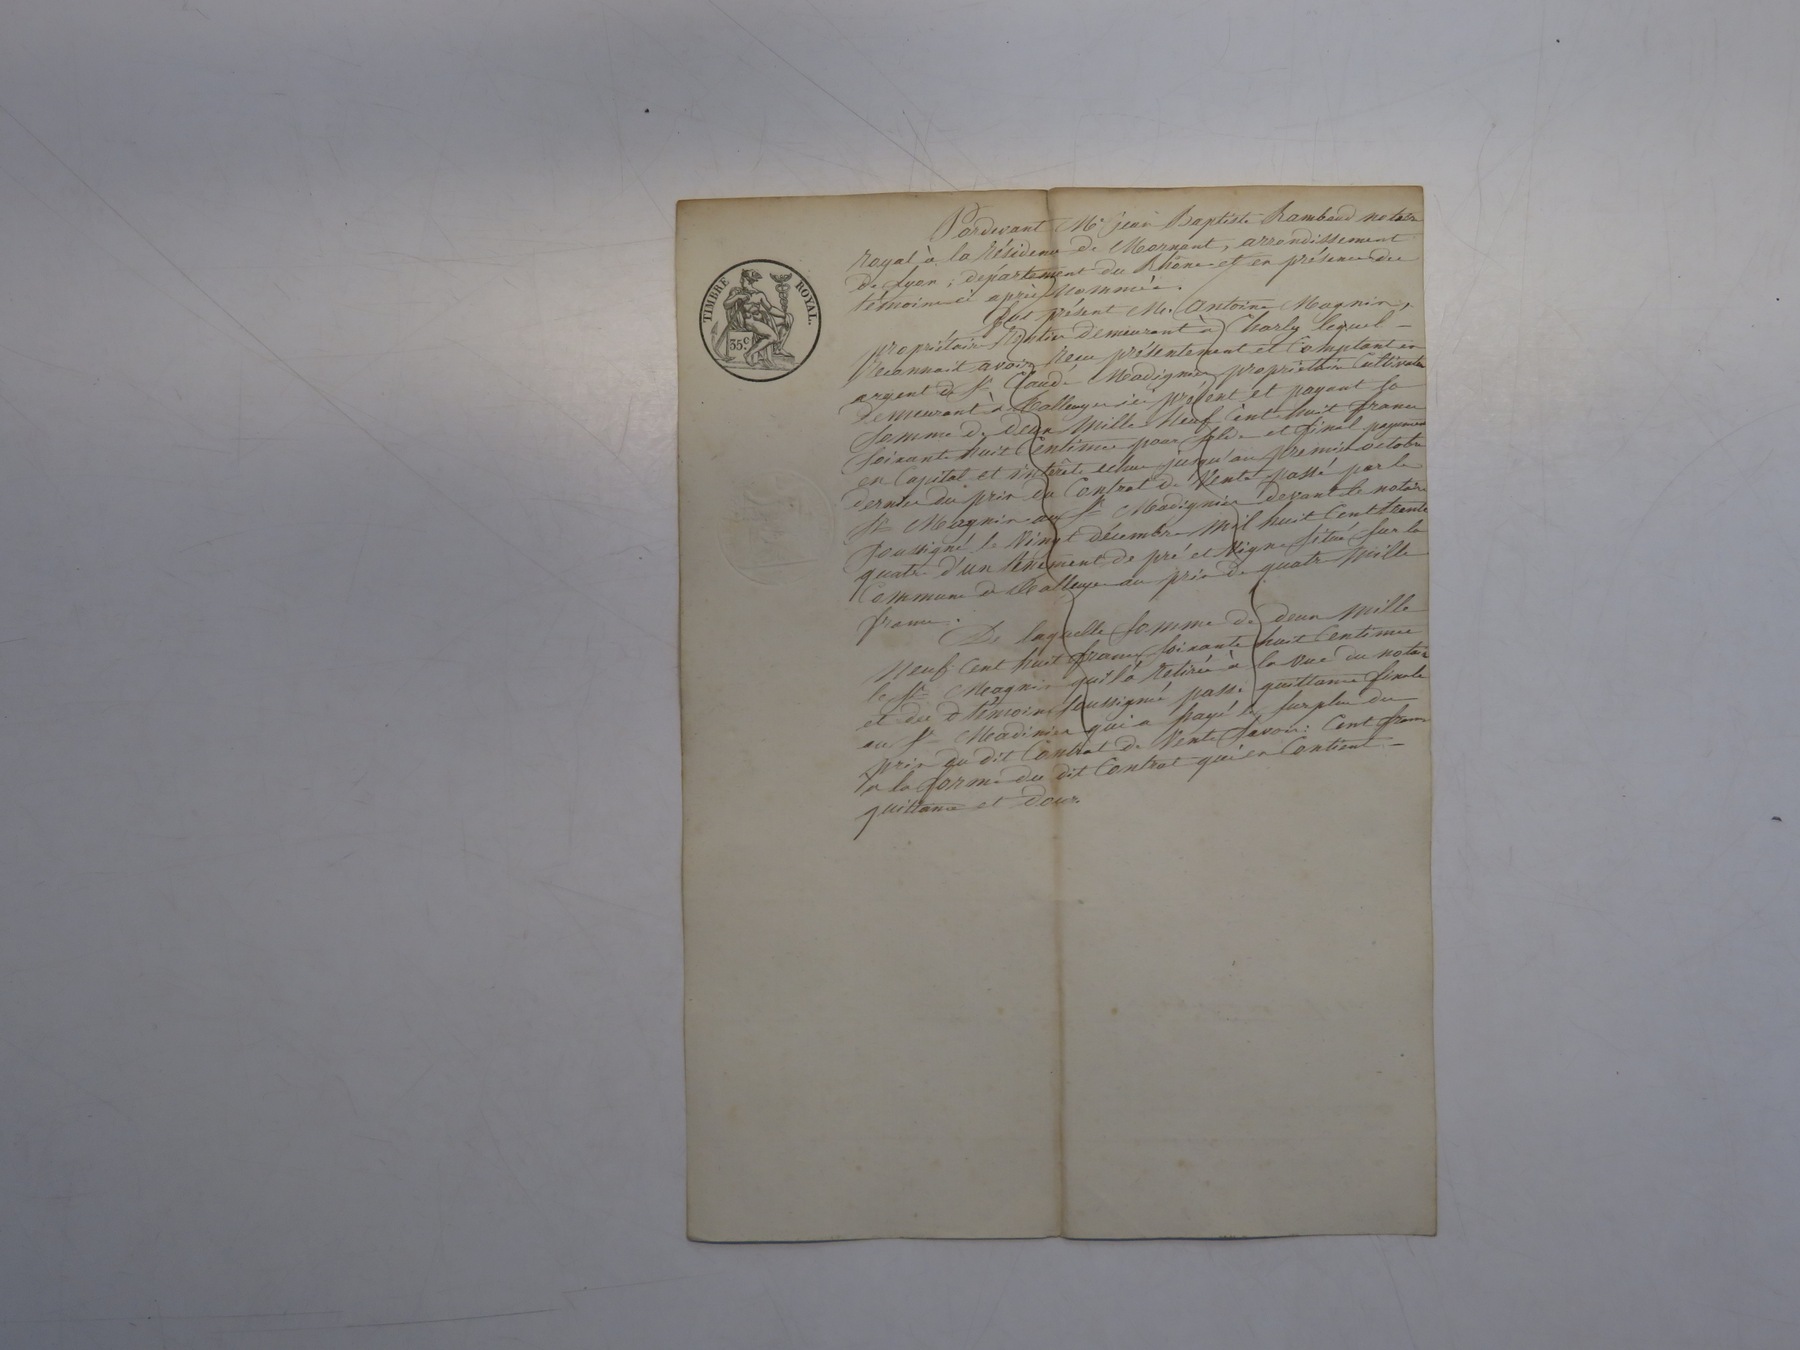 TIMBRE ROYAL.
35 c.
Pardevant Me jean Baptiste Rambaud notaire
royal à la Résidence de Mornant, arrondissement
de Lyon, département du Rhône et en présence des
témoins ci après nommés.
fut présent Mr. Antoine Magnin,
propriétaire Rentier demeurant à Charly lequel –
Reconnait avoir Reçu présentement et Comptant en
argent de Sr. Claude Madignier propriétaire Cultivateur
demeurant à ici présent et payant la
Somme de deux Mille Neuf Cent huit francs
Soixante huit Centimes pour Solde et final payement
en Capital et intérêts echus jusqu'au premier octobre
dernier du prix du Contrat de Vente passé par le
Sr. Magnin au Sr. Madignier devant le notaire
Soussigné le Vingt décembre Mil huit Cent trente
quatre d'un tenement de pré et Vigne Situé Sur la
Commune de au prix de quatre Mille
francs.
De laquelle Somme de deux Mille
Neuf Cent huit francs Soixante huit Centimes
le Sr. Magnin qui l'a Retirée à la Vue du notaire
et des dts témoins Soussignés passe quittance finale
au Sr. Madinier qui a payé le Surplus du
prix du dit Contrat de Vente Savoir: Cent francs
à la forme du dit Contrat qui en Contient –
quittance et Douze